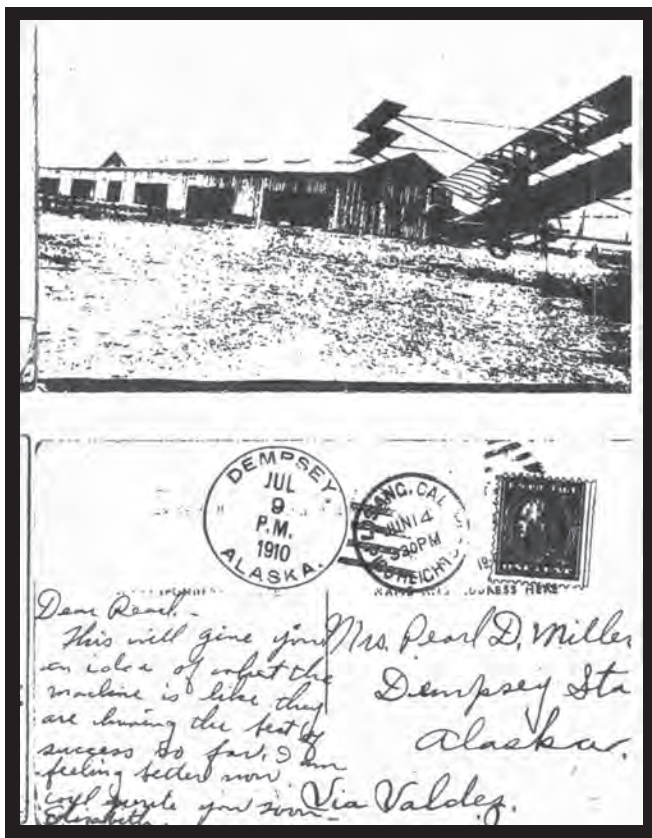 DEMPSEY
JUL
9
P.M.
1910
ALASKA.
JUN 14
3 30 PM
Dear Pearl.-
This will give you
an idea of what the
machine is like they
are having the best of
success so far. I am
feeling better now
will write you soon-
Elizabeth.
Mrs. Pearl D. Miller
Dempsey Sta
Alaska.
Via Valdez.